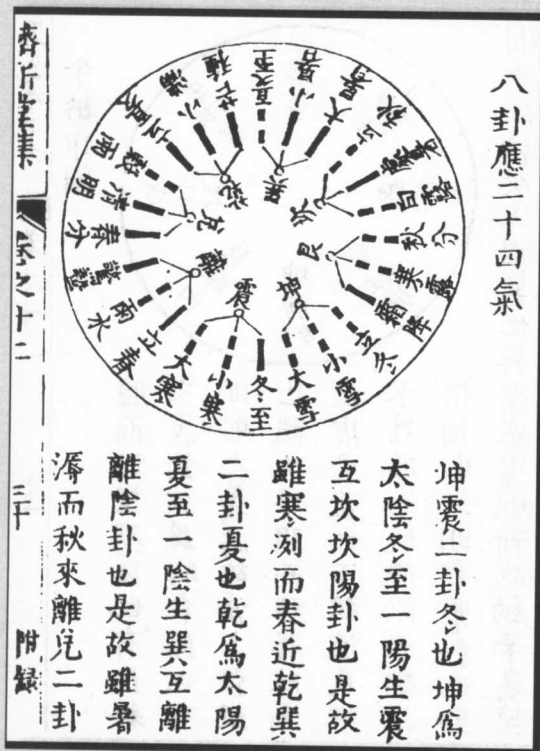 八卦應二十四氣
冬至
小寒
大寒
立春
雨水
驚蟄
春分
清明
穀雨
立夏
小滿
芒種
夏至
小暑
大暑
立秋
處暑
白露
秋分
寒露
霜降
立冬
小雪
大雪
震
離
兌
乾
巽
坎
艮
坤
坤震二卦冬也坤爲
太陰冬至一陽生震
互坎坎陽卦也是故
雖寒冽而春近乾巽
二卦夏也乾爲太陽
夏至一陰生巽互離
離陰卦也是故雖暑
溽而秋來離兌二卦
卷之十二
三十
附錄